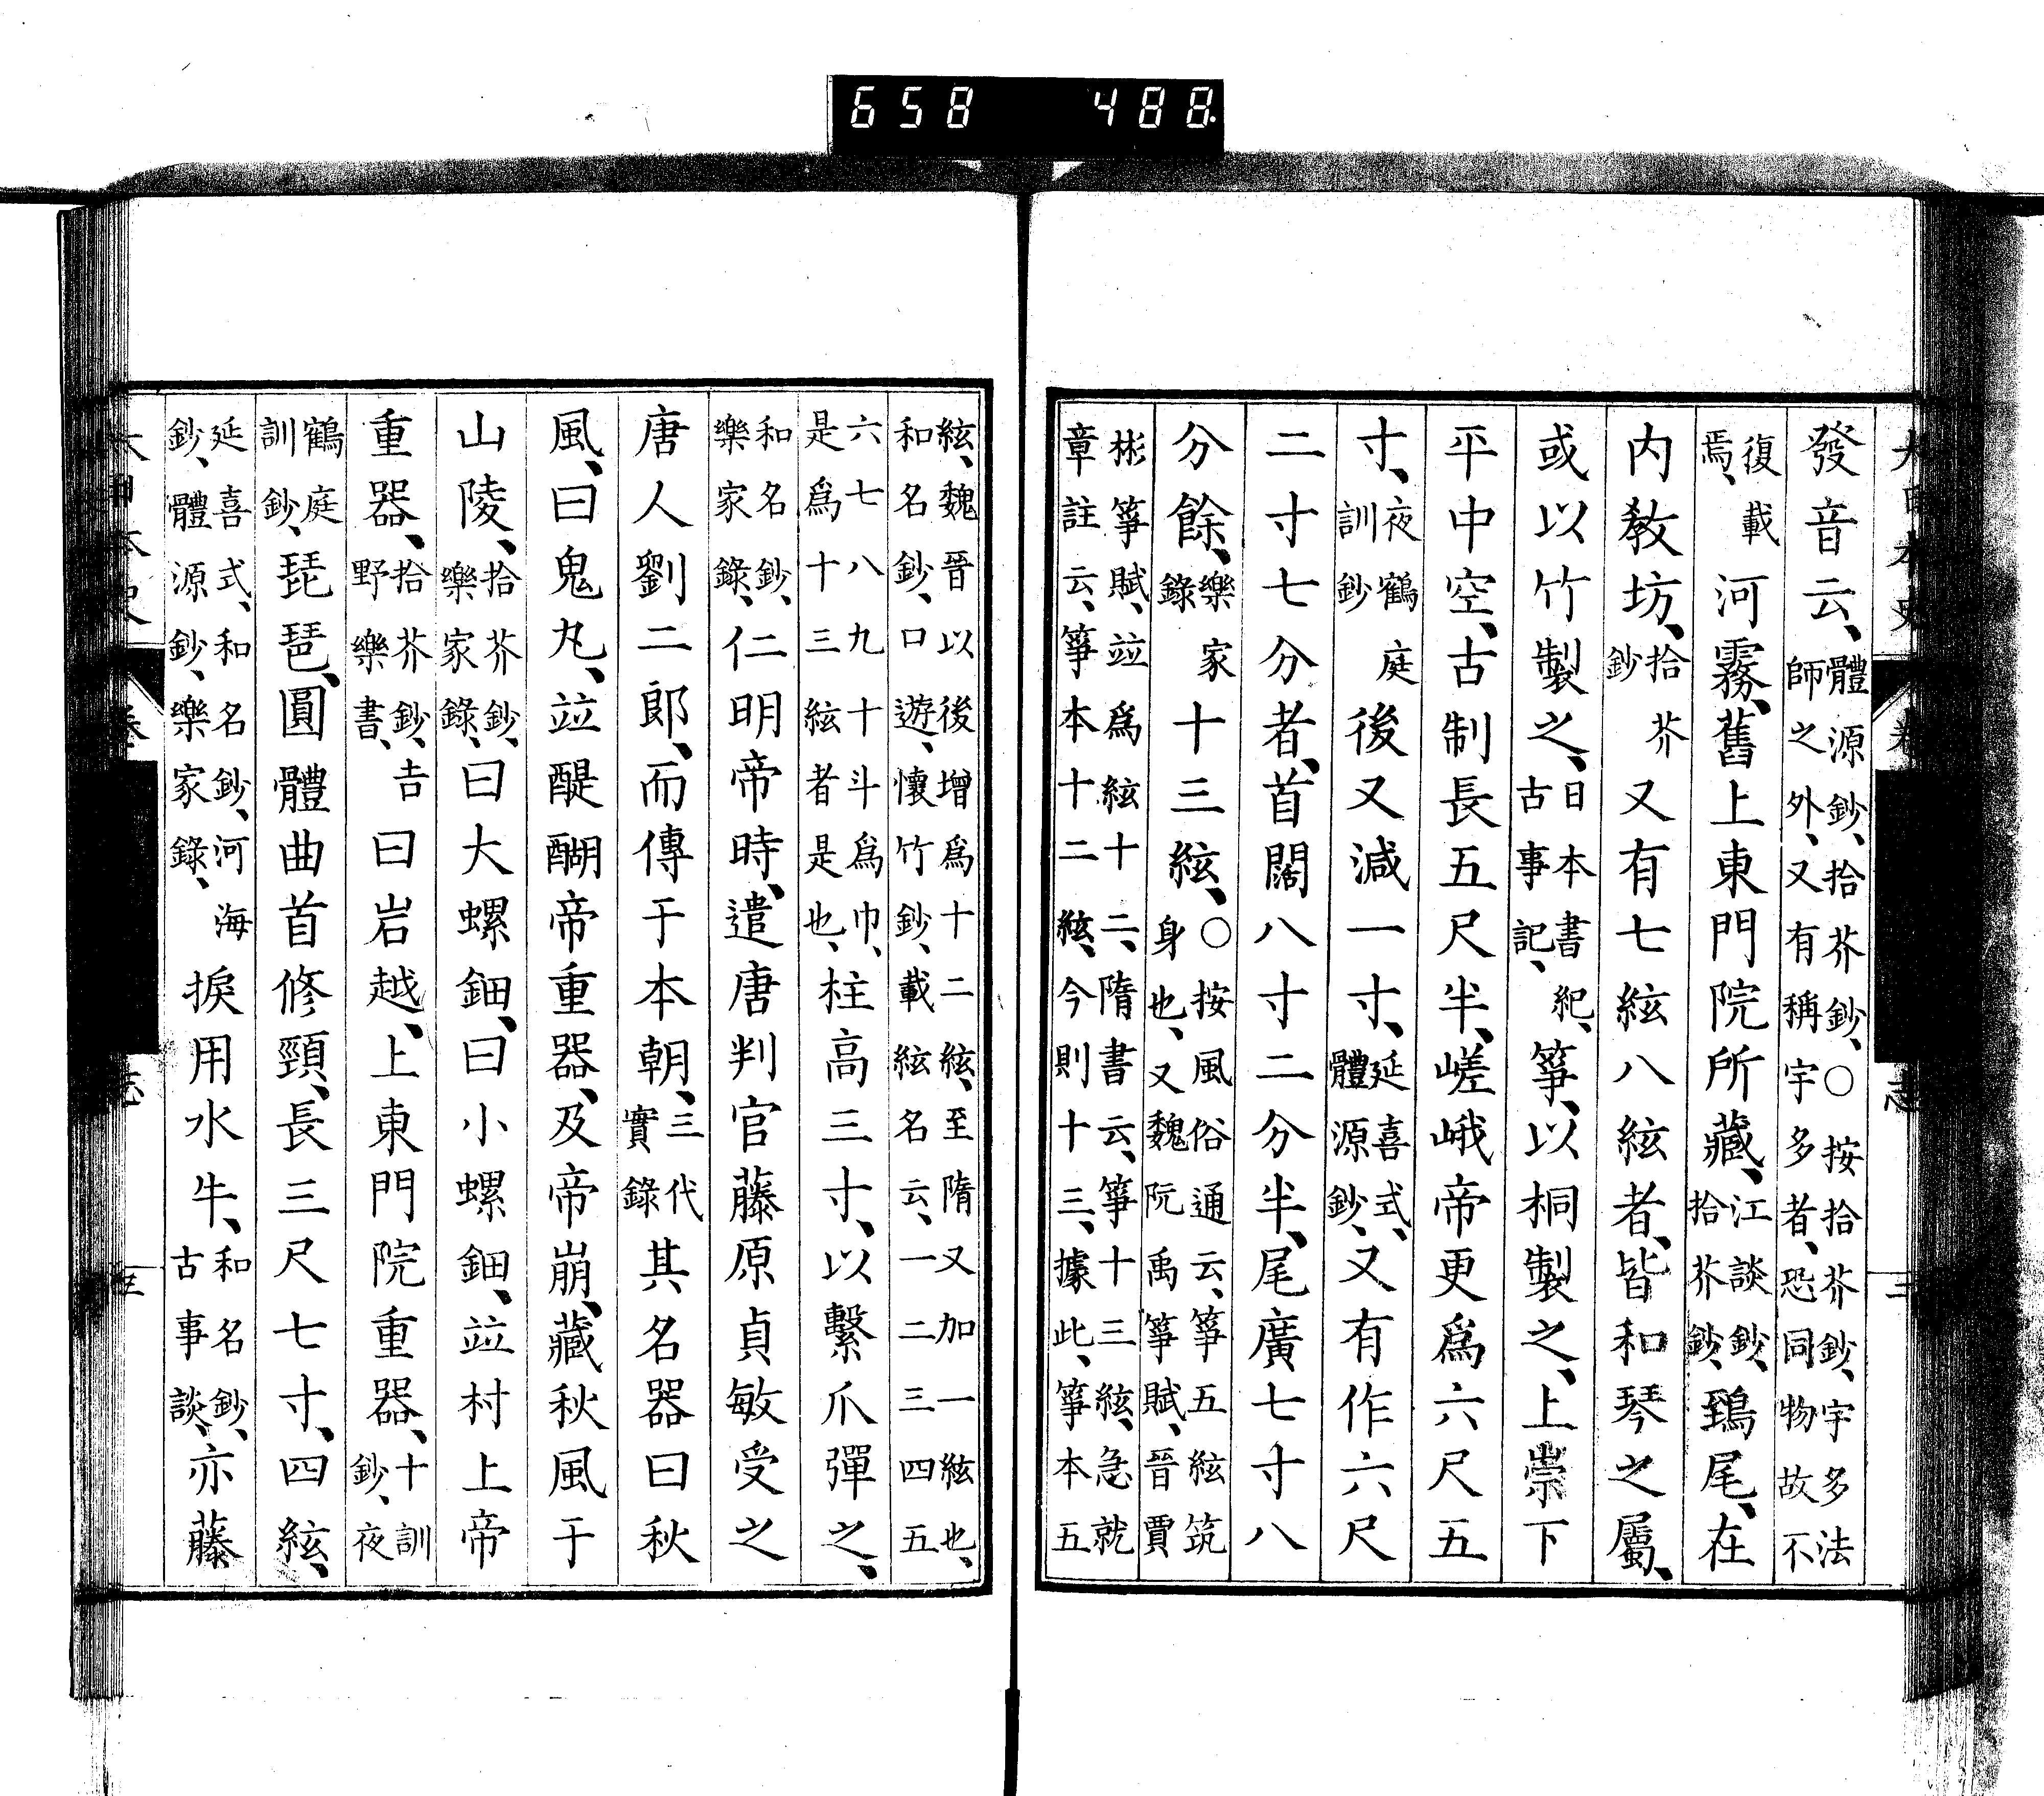 658 488
發音云、體源鈔、拾芥鈔、○按拾芥鈔、宇多法師之外、又有稱宇多者、恐同物故不
復載焉、河霧、舊上東門院所藏、江談鈔、拾芥鈔、鵄尾、在
內教坊、拾芥鈔又有七絃八絃者、皆和琴之屬、
或以竹製之、日本書紀、古事記、箏、以桐製之、上崇下
平中空、古制長五尺半、嵯峨帝更爲六尺五
寸、夜鶴庭訓鈔後又減一寸、延喜式、體源鈔、又有作六尺
二寸七分者、首闊八寸二分半、尾廣七寸八
分餘、樂家錄十三絃、○按風俗通云、箏五絃筑身也、又魏阮禹箏賦、晉賈
彬箏賦、竝爲絃十二、隋書云、箏十三絃、急就章註云、箏本十二絃、今則十三、據此、箏本五
絃、魏晉以後增爲十二絃、至隋又加一絃也、和名鈔、口遊、懷竹鈔、載絃名云、一二三四五
六七八九十斗爲巾、是爲十三絃者是也、柱高三寸、以繫爪彈之、
和名鈔、樂家錄、仁明帝時、遣唐判官藤原貞敏受之
唐人劉二郎、而傳于本朝、三代實錄其名器曰秋
風、曰鬼丸、竝醍醐帝重器、及帝崩、藏秋風于
山陵、拾芥鈔、樂家錄、曰大螺鈿、曰小螺鈿、竝村上帝
重器、拾芥鈔、吉野樂書、曰岩越、上東門院重器、十訓鈔、夜
鶴庭訓鈔、琵琶、圓體曲首修頸、長三尺七寸、四絃、
延喜式、和名鈔、河海鈔、體源鈔、樂家錄、捩用水牛、和名鈔、古事談、亦藤